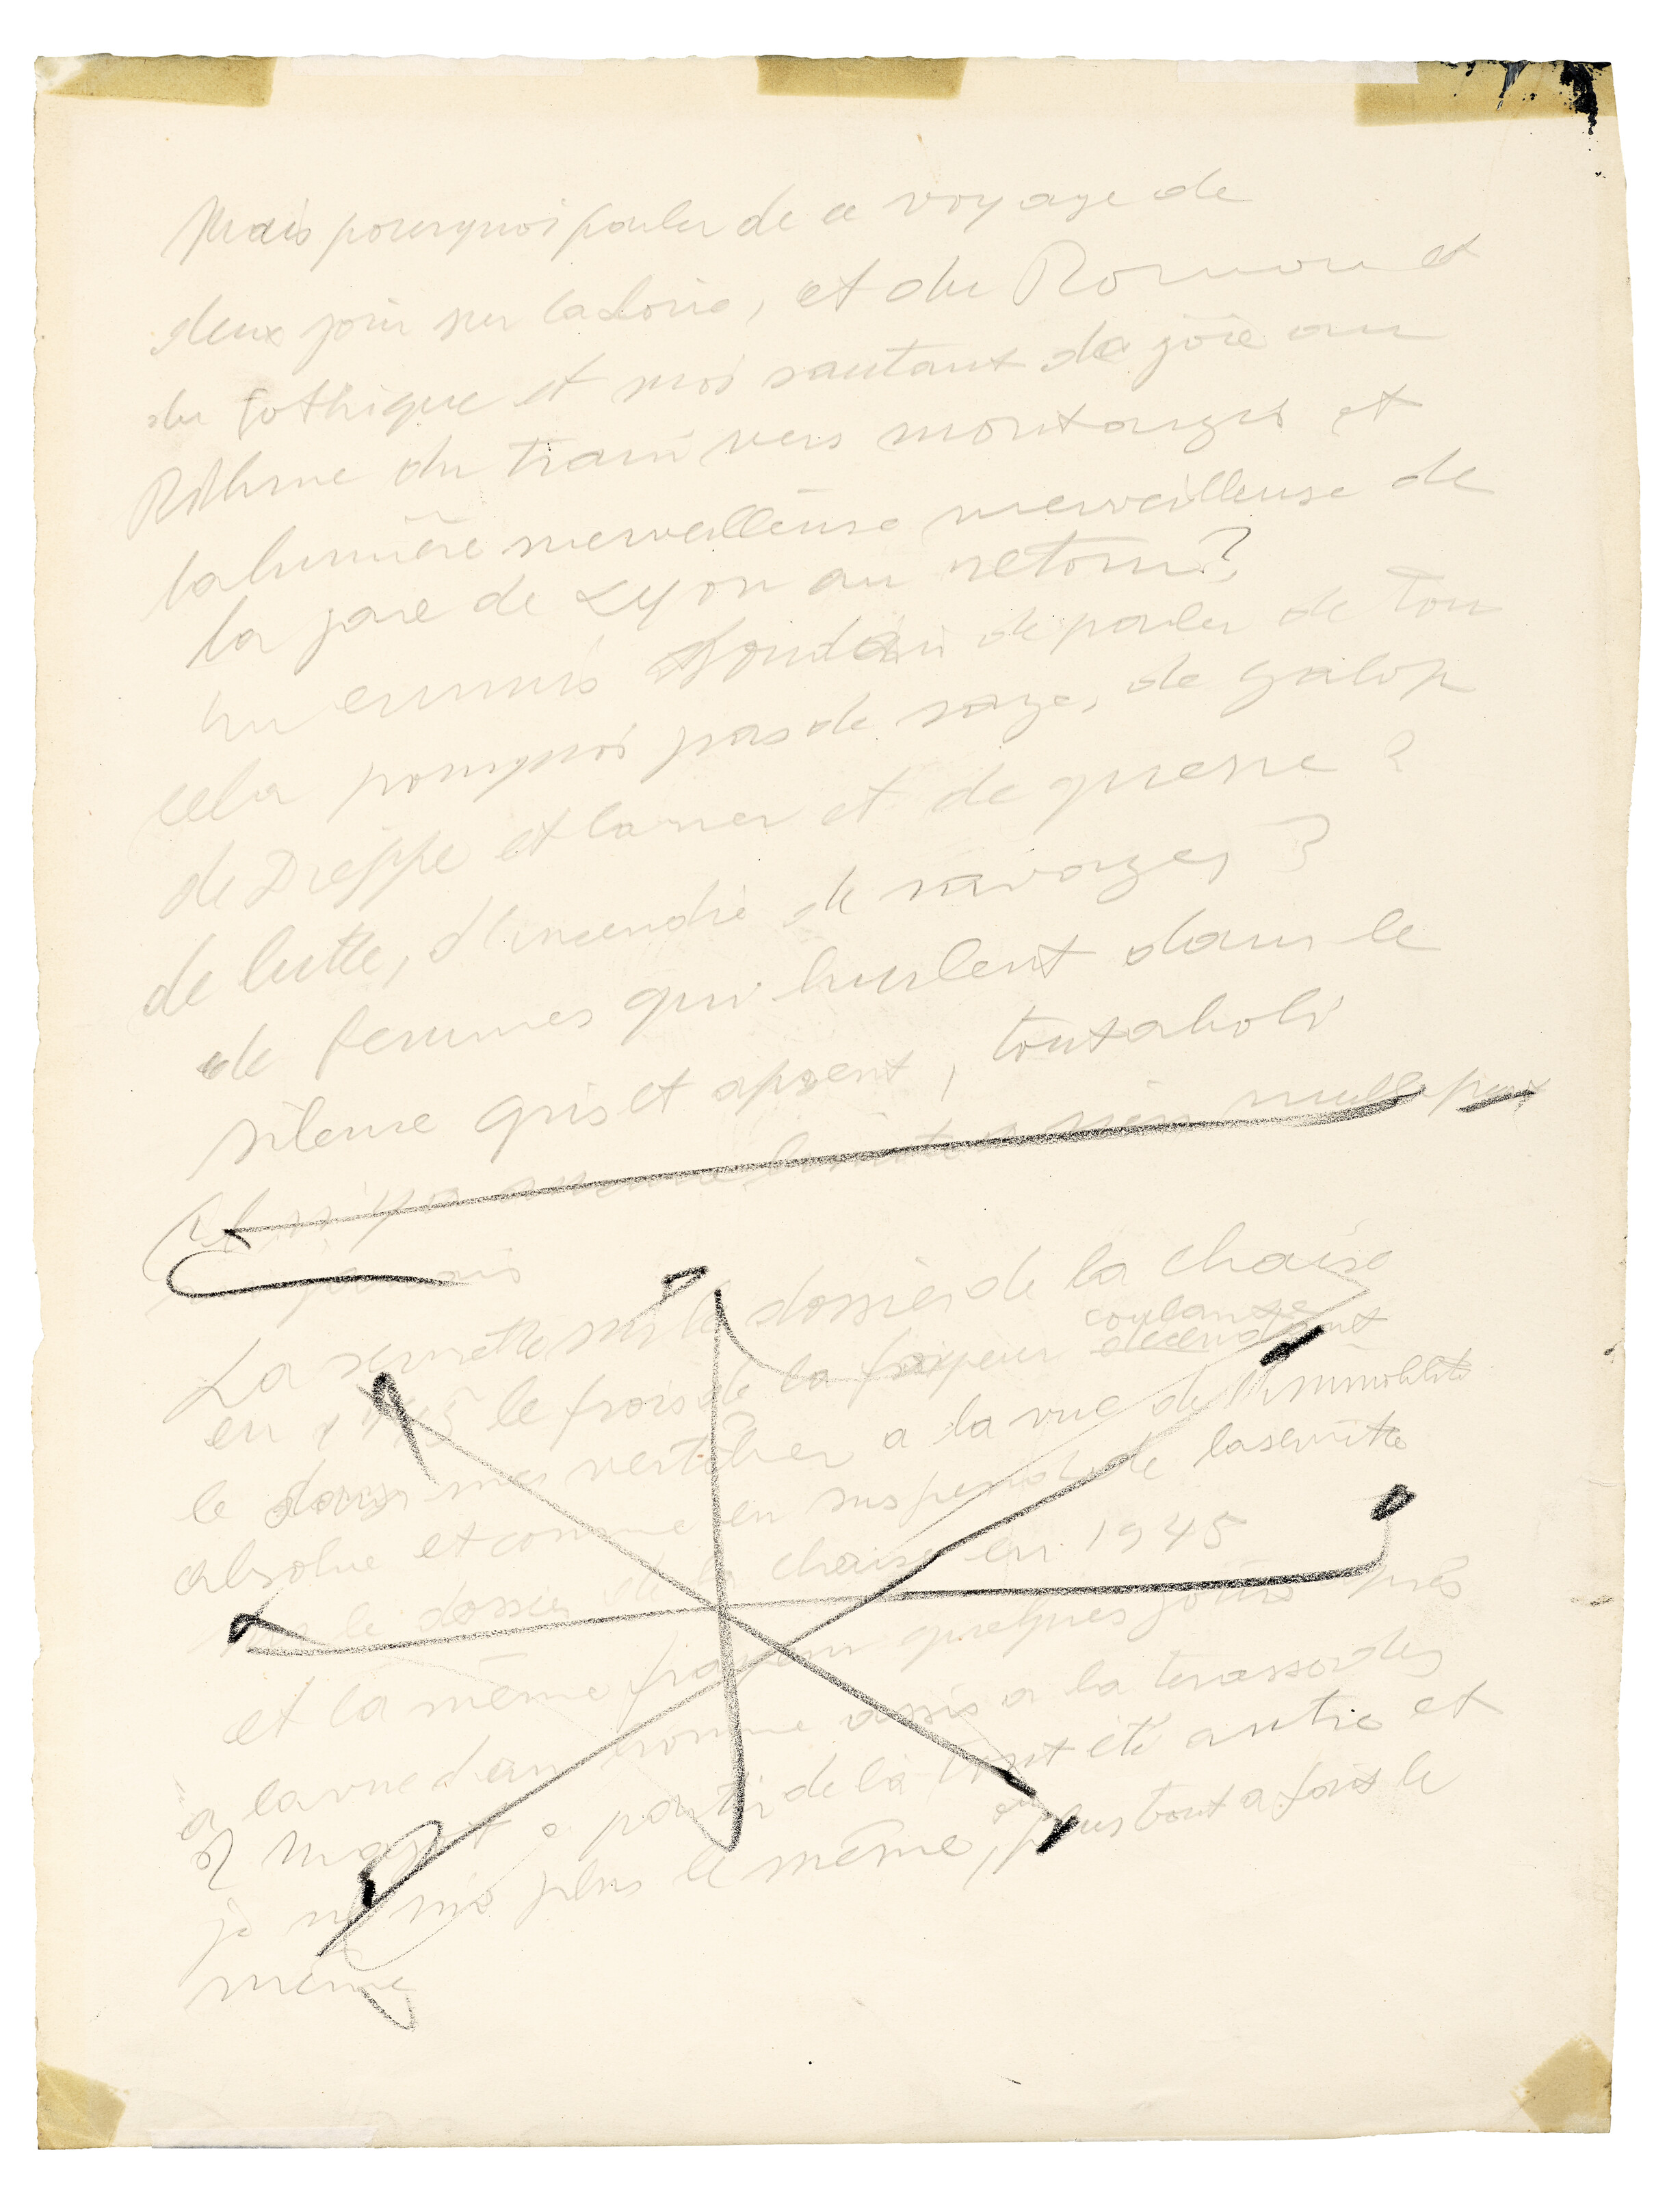 Mais pourquoi parler de ce voyage de
deux jour sur la Loire, et du Roman et
du Gothique et moi sautant de joie au
Rithme du train vers montargis et
la lumière merveilleuse merveilleuse de
la gare de Lyon au retour?
un ennuis soudain de parler de tou
cela pourquoi pas de rage, de galop
de Dieppe et la mer et de guerre ?
de lutte, d'incendie de ravages ?
de femmes qui hurlent dans le
silence gris et absent, tout aboli
Il n'y a aucune rien nulle part
jamais
La serviette sur le dossier de la chaise
en 1945 le froid de la frayeur
coulant
descendant
le dans mes vertèbres a la vue de l'immobilité
absolue et comme en suspend de la serviette
le dossier de la chaise en 1945
et la même frayeur quelques jours après
a la vue d'un homme assis a la terrasse des
2 Magot a partir de là tout été autre et
je ne suis plus le même, ou plus tout a fait le
même